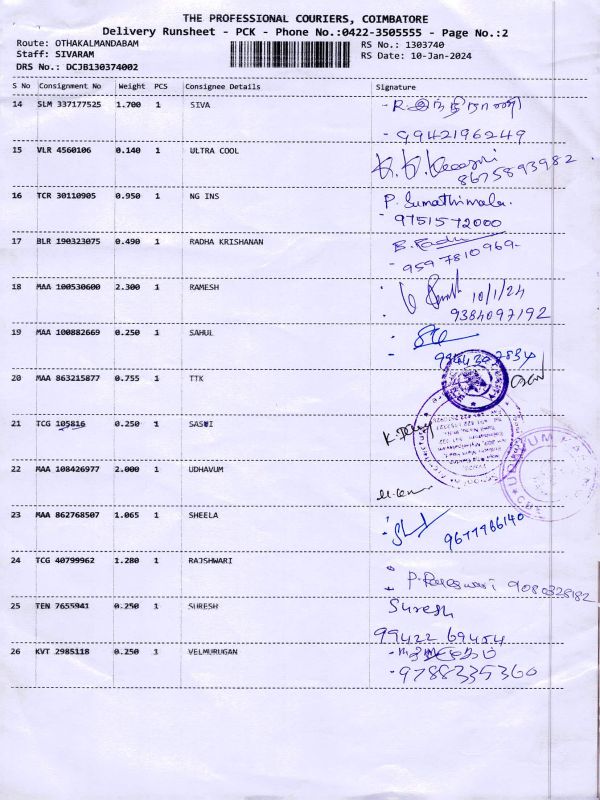 THE PROFESSIONAL COURIERS, COIMBATORE
Delivery Runsheet - PCK - Phone No.:0422-3505555 - Page No.:2
Route: OTHAKALMANDABAM
RS No.: 1303740
Staff: SIVARAM
RS Date: 10-Jan-2024
DRS No.: DCJB130374002
S No Consignment No Weight PCS Consignee Details Signature
14 SLM 337177525 1.700 1 SIVA
9942196249
15 VLR 4560106 0.140 1 ULTRA COOL
8675893982
16 TCR 30110905 0.950 1 NG INS P. Sumathimala.
9751572000
17 BLR 190323075 0.490 1 RADHA KRISHANAN
9597810969
18 MAA 100530600 2.300 1 RAMESH 10/1/24
9384097192
19 MAA 100882669 0.250 1 SAHUL
20 MAA 863215877 0.755 1 TTK
21 TCG 105816 0.250 1 SASVI
22 MAA 108426977 2.000 1 UDHAVUM
23 MAA 862768507 1.065 1 SHEELA
9677966140
24 TCG 40799962 1.280 1 RAJSHWARI
P. Rajeswari 9080328182
25 TEN 7655941 0.250 1 SURESH Suresh
99422 69454
26 KVT 2985118 0.250 1 VELMURUGAN
9788335360